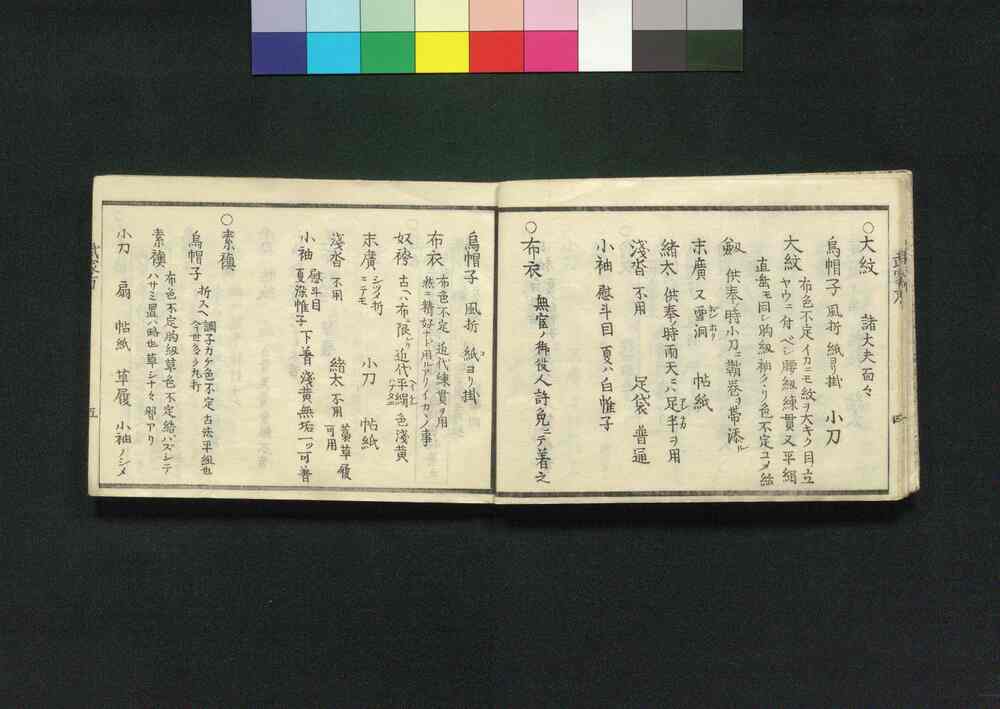 ○大紋　諸大夫面々
烏帽子　風折　紙ヨリ掛　小刀
大紋　布色不定イカニモ紋ヲ大キク目立
ヤウニ付ベシ腰紐練貫又平絹
直垂モ同シ胸紐神クヽリ色不定ユメ結
劔　供奉ノ時小刀ニ鞘巻ヲ帯添ル
末廣　又雪洞　帖紙
緒太　供奉ノ時雨天ニハ足半ヲ用
淺沓　不用　足袋　普通
小袖　慰斗目　夏ハ白帷子
○布衣　無官ノ御役人許免ニテ著之
烏帽子　風折　紙ヨリ掛
布衣　布色不定　近代練貫ヲ用
然ニ精好ナド用ルアリイカヽノ事
奴袴　古ヘハ布ニ限ル　近代平絹　色淺黄
末廣　シヅメ折ニテモ　小刀　帖紙
淺沓　不用　緒太　不用　藁草履可用
小袖　慰斗目　夏染帷子　下着　淺黄無垢一ツ可著
○素襖
烏帽子　折スヘ　調子カケ色不定　古法平組也
今世多ク丸打
素襖　布色不定胸紐草ノ色不定　結ハズシテ
ハサミ置ハ略也　草シナ々　習アリ
小刀　扇　帖紙　草履　小袖ノシメ
四
五